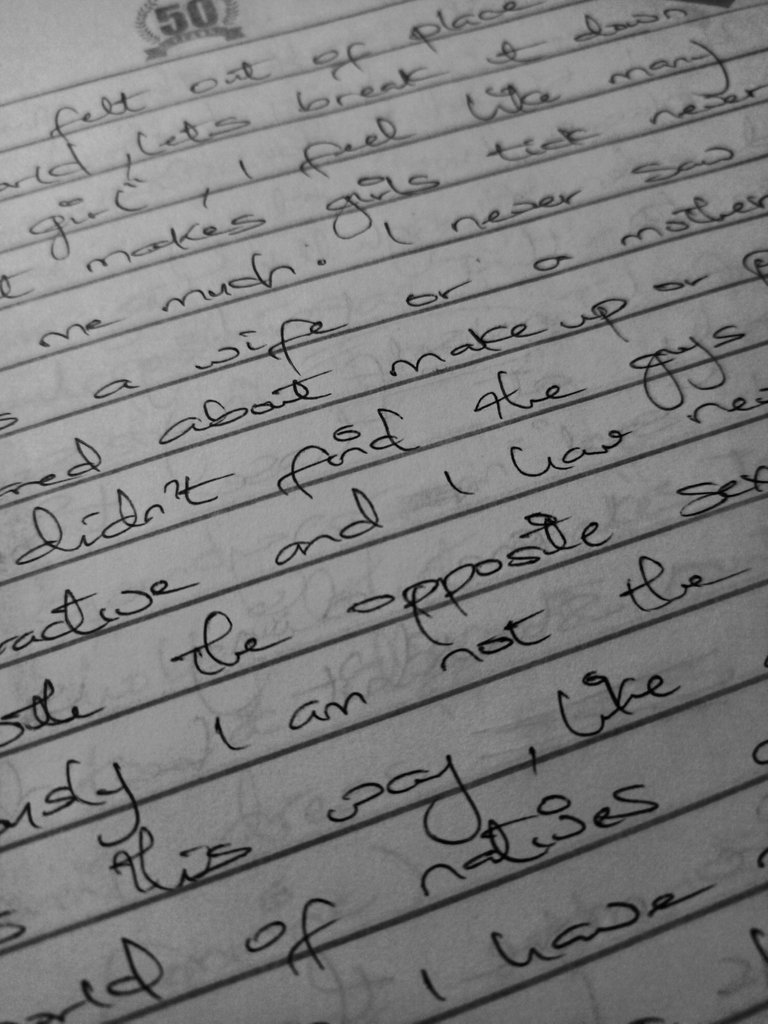 50
felt out of place
orld, lets break it down
girl", I feel like many
t makes girls tick never
me much. I never saw
s a wife or a mother
red about makeup or
didn't find the guys
ractive and I have
the opposite sex
usly I am not the
this way, like
orld of natives
I have